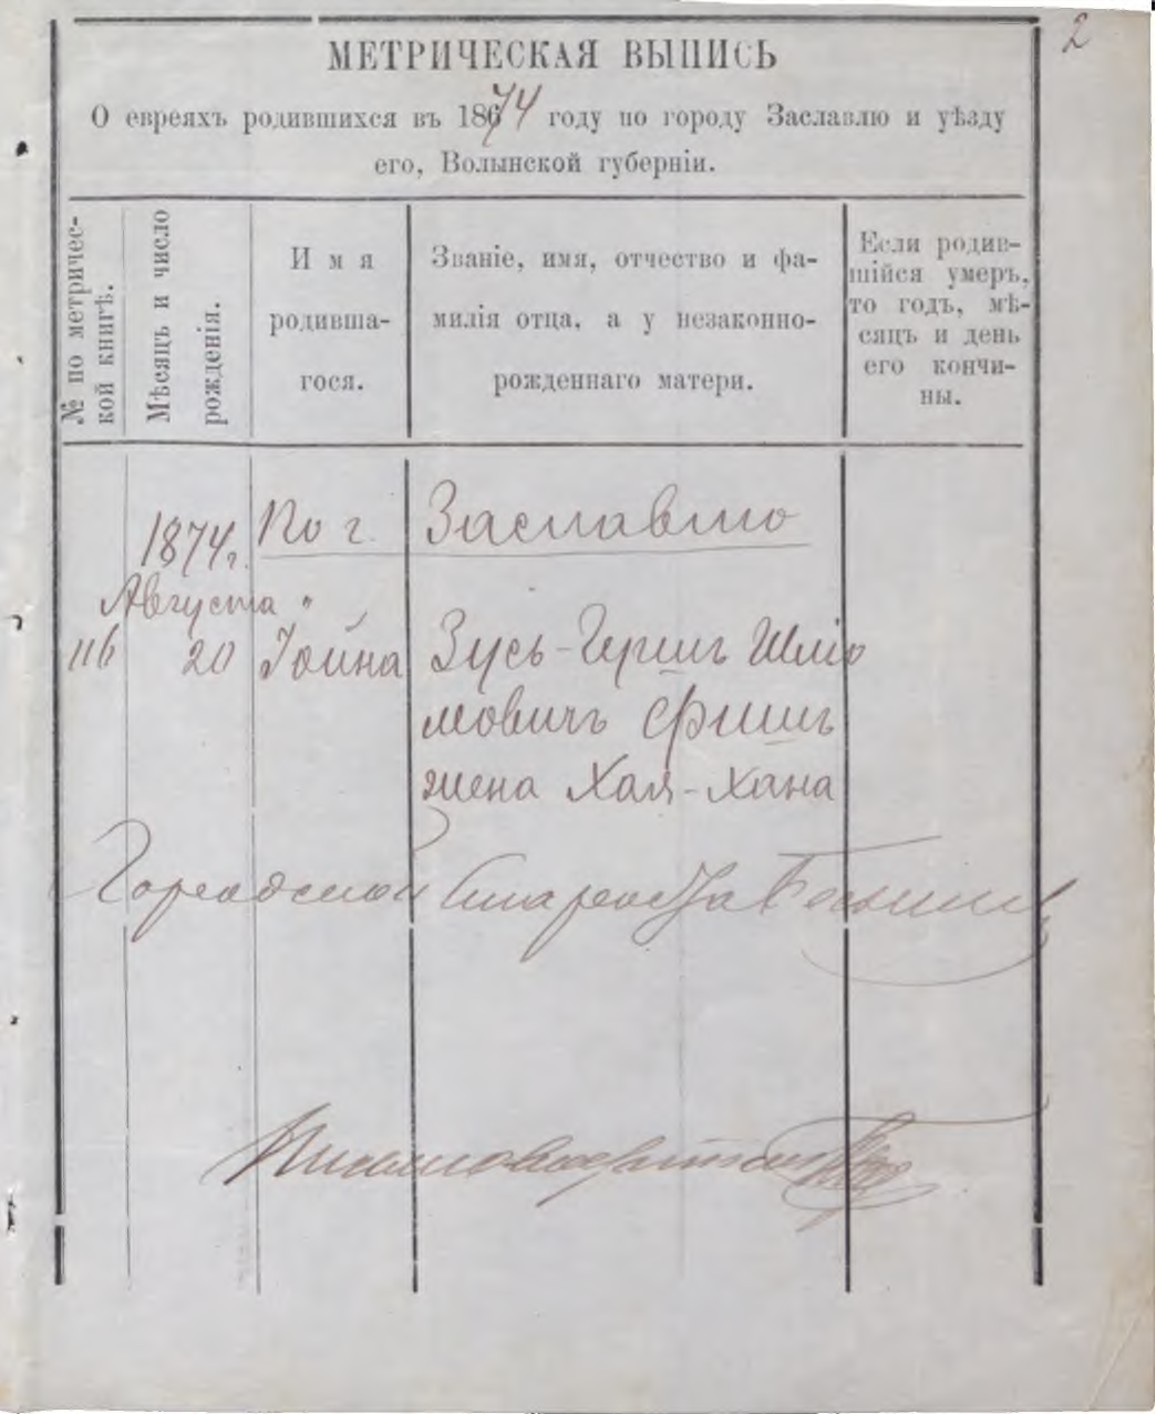 2
МЕТРИЧЕСКАЯ ВЫПИСЬ
О евреяхъ родившихся въ 1874 году по городу Заславлю и уѣзду
его, Волынской губерніи.
№ по метричес-
кой книгѣ.
Мѣсяцъ и число
рожденія.
Имя
родивша-
гося.
Званіе, имя, отчество и фа-
милія отца, а у незаконно-
рожденнаго матери.
Если родив-
шійся умеръ,
то годъ, мѣ-
сяцъ и день
его кончи-
ны.
1874г. По г. Заславлю
Августа "
116 20 Іойна Зусь-Гершъ Шліо
мовичъ Фишъ
жена Хая-Хана
Городской Староста